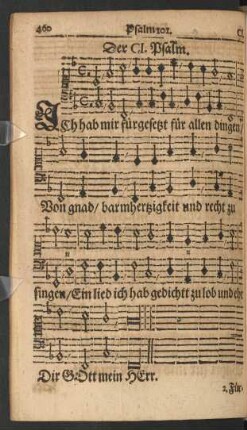 460 Psalm 101.
Der CI. Psalm.
ICh hab mir fürgesetzt für allen dingen
Von gnad/ barmhertzigkeit und recht zu
singen/Ein lied ich hab gedichtt zu lob und ehr
Dir GOtt mein HErr.
2. Für-